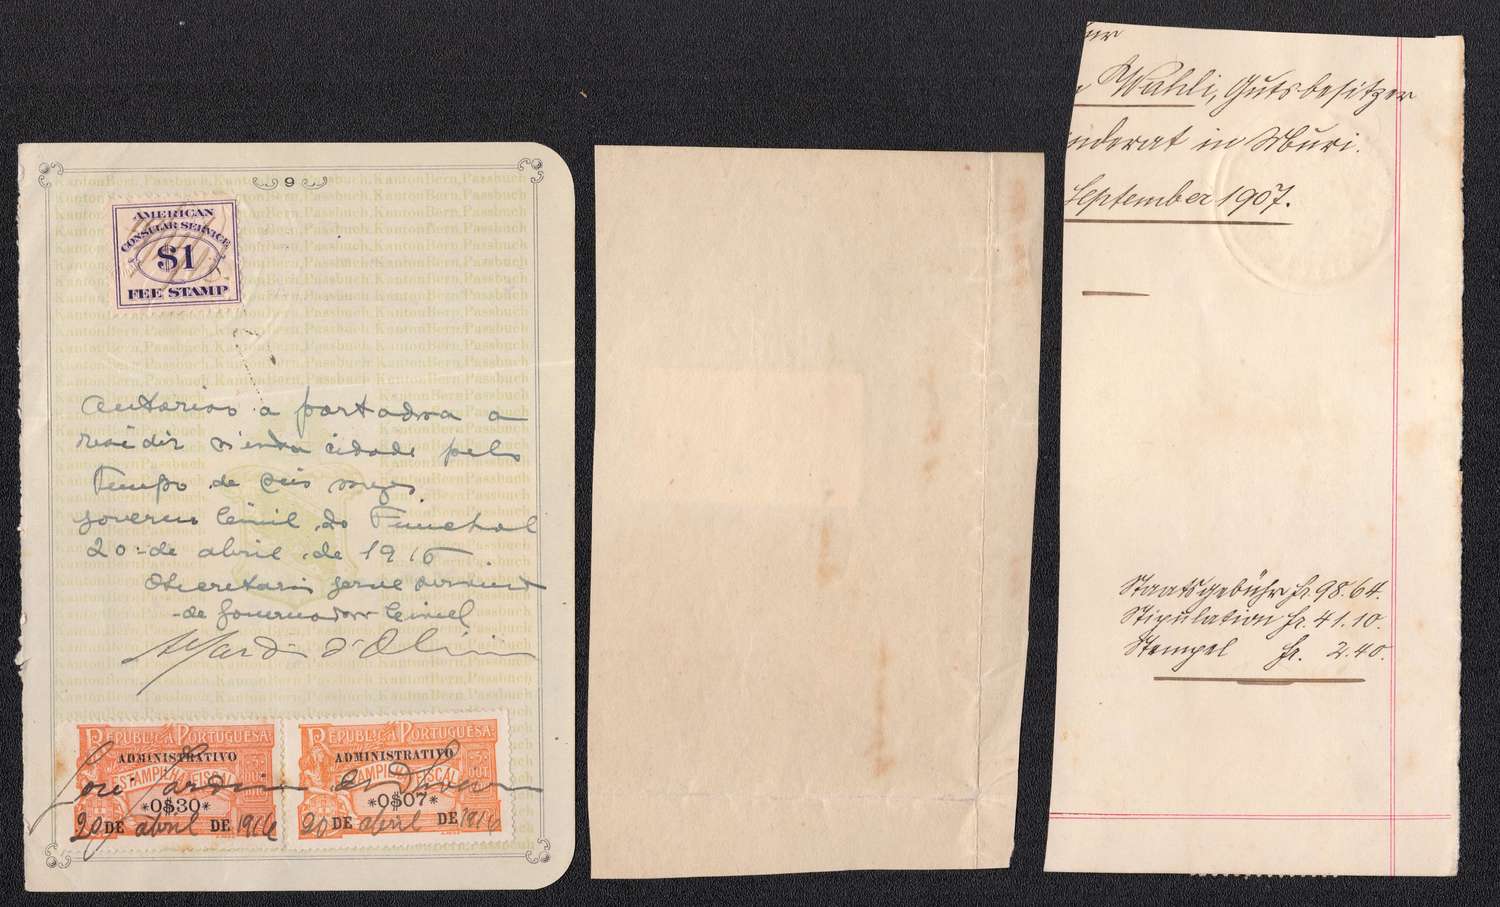 9
AMERICAN
CONSULAR SERVICE
$1
FEE STAMP
Kanton Bern, Passbuch
autoriso a portadora a
residir n'esta cidade pelo
tempo de seis mezes
Governo Civil do Funchal
20 de abril de 1916
O Secretario Geral servindo
de Governador Civil
REPUBLICA PORTUGUESA
ADMINISTRATIVO
ESTAMPILHA FISCAL
*0$30*
20 DE abril DE 1916
REPUBLICA PORTUGUESA
ADMINISTRATIVO
ESTAMPILHA FISCAL
*0$07*
20 DE abril DE 1916
José Jardim d'Oliveira
Wahli, Gutsbesitzer
inderat in Muri.
September 1907.
Staatsgebühr Fr. 98.64.
Stipulation Fr. 41.10.
Stempel Fr. 2.40.